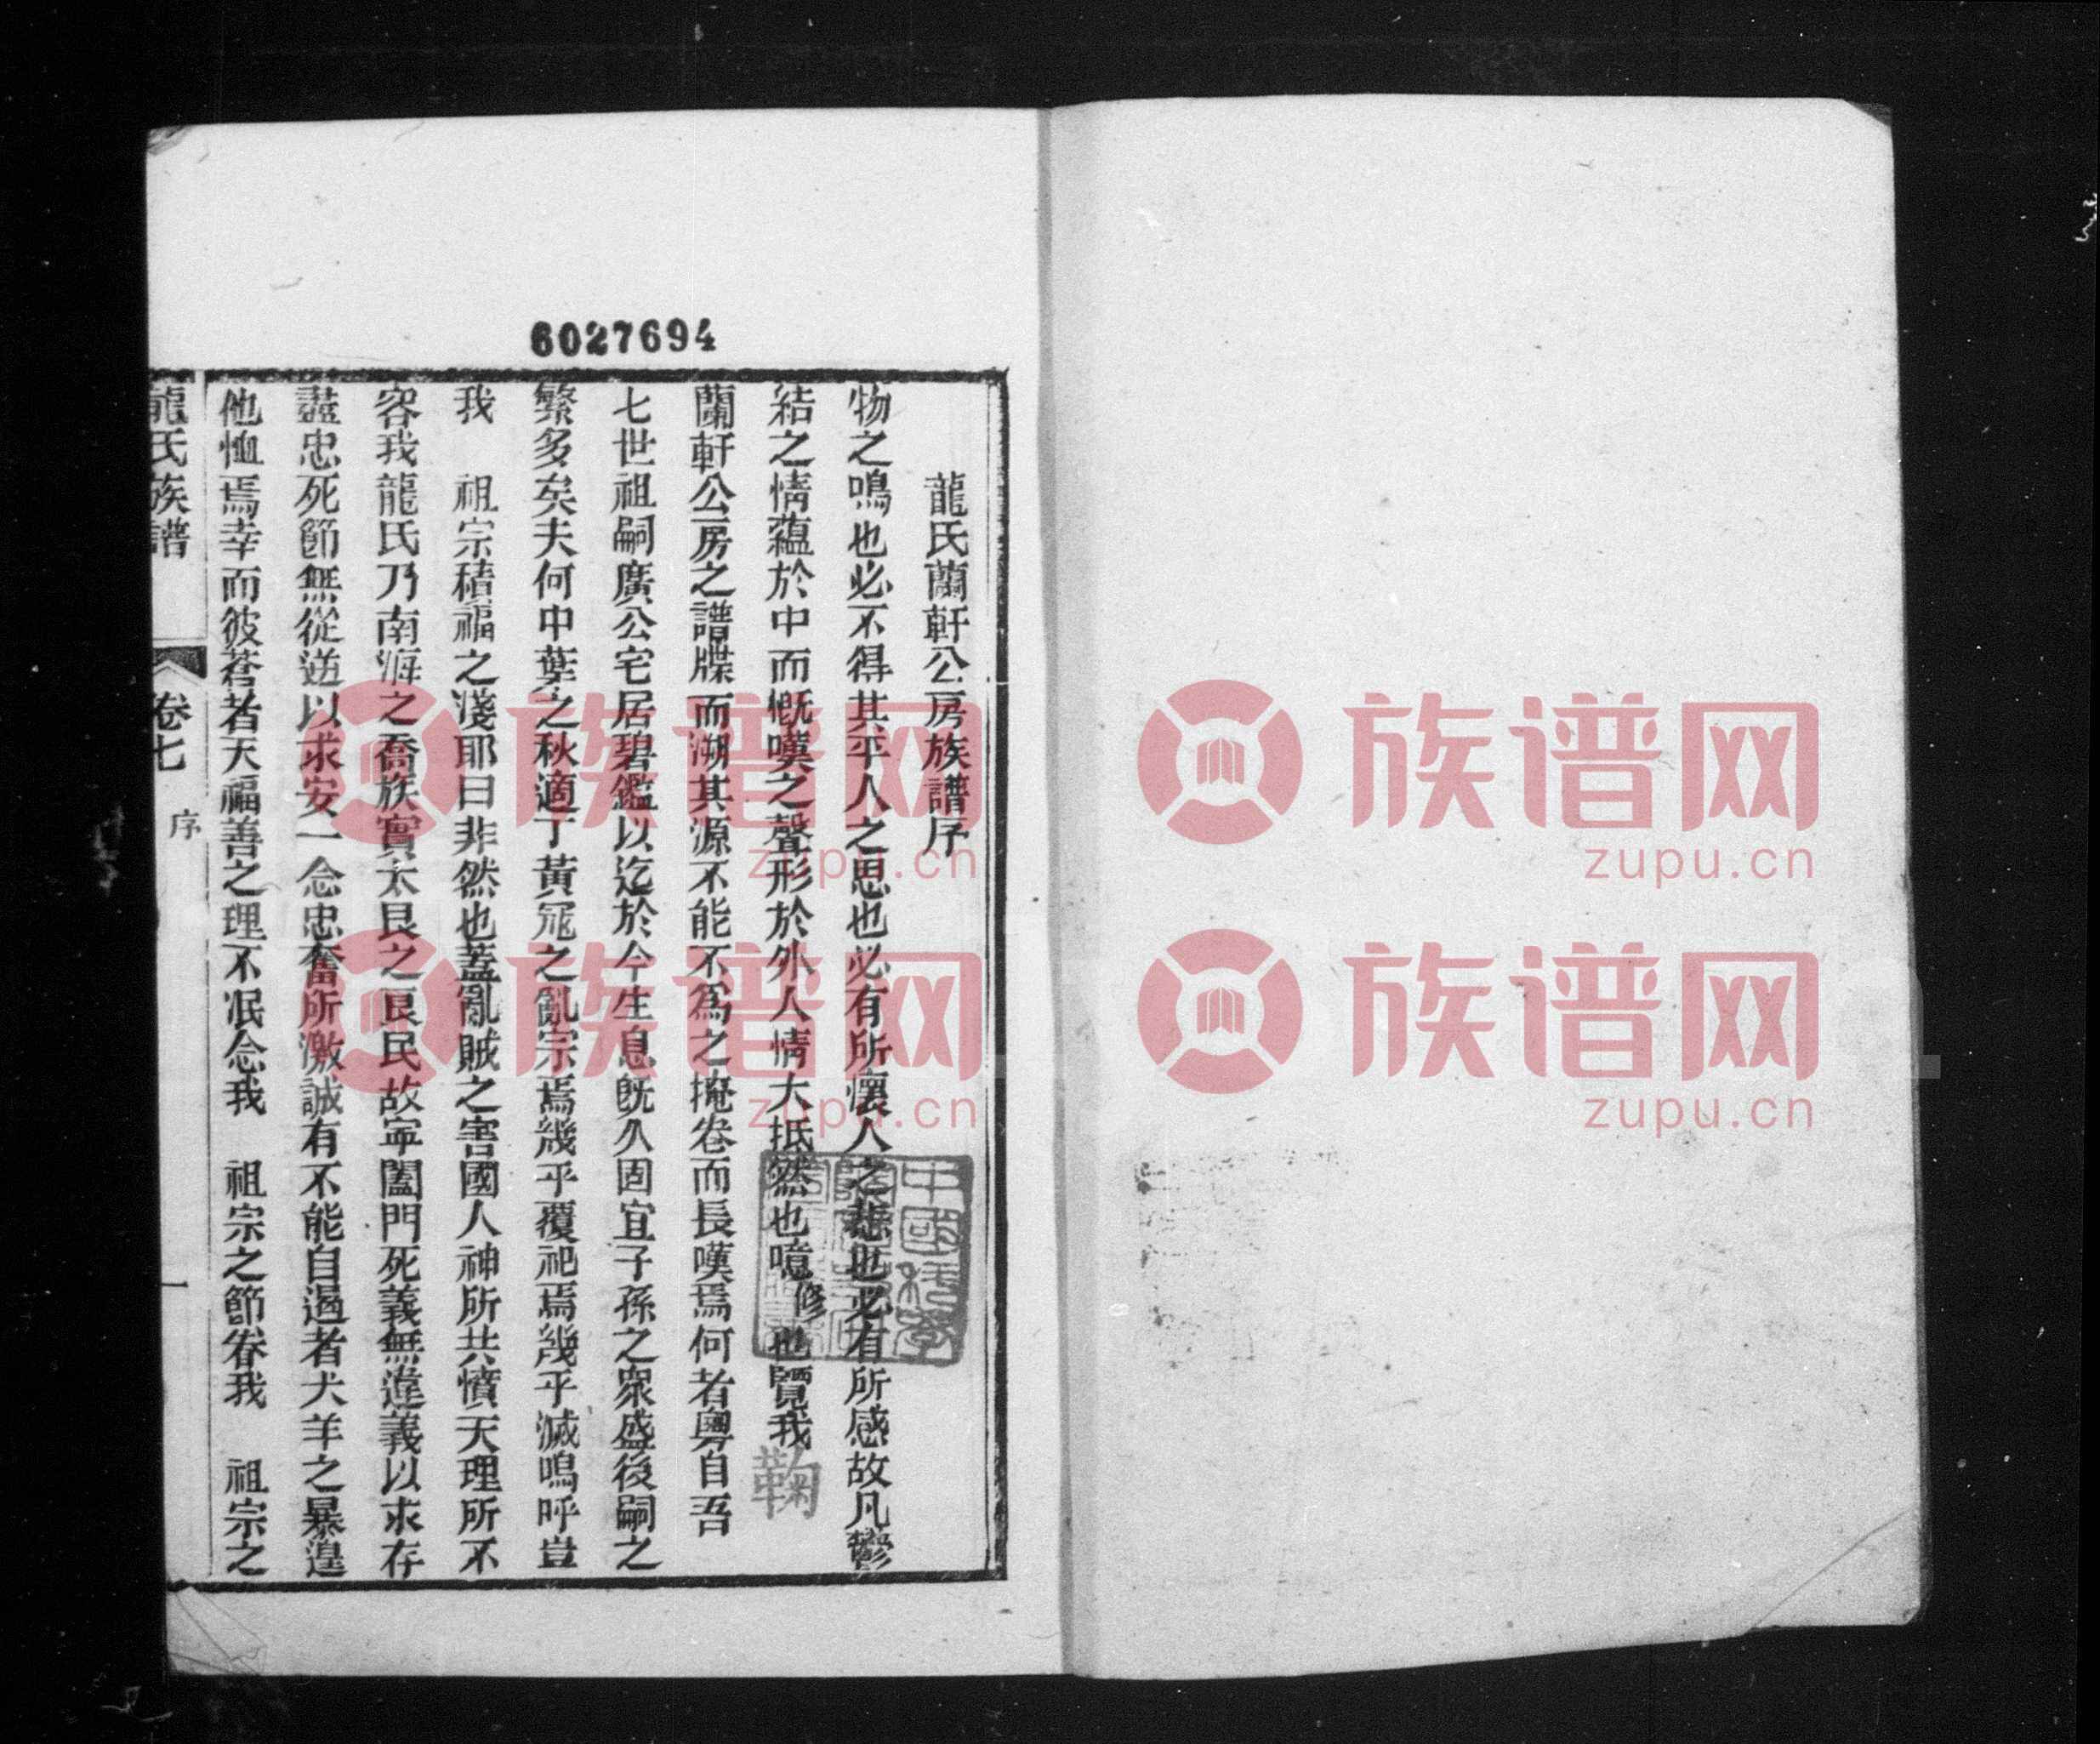 6027694
龍氏蘭軒公房族譜序
物之鳴也必不得其平人之思也必有所懷人之悲也必有所感故凡鬱
結之情蘊於中而慨嘆之聲形於外人情大抵然也噫修也覽我
蘭軒公房之譜牒而溯其源不能不爲之掩卷而長嘆焉何者粵自吾
七世祖嗣廣公宅居碧鑑以迄於今生息旣久固宜子孫之衆盛後嗣之
繁多矣夫何中葉之秋適丁黃冦之亂宗焉幾乎覆祀焉幾乎滅嗚呼豈
我　祖宗積福之淺耶曰非然也蓋亂賊之害國人神所共憤天理所不
容我龍氏乃南海之喬族實太艮之良民故寧闔門死義無違義以求存
盡忠死節無從逆以求安一念忠奮所激誠有不能自遏者犬羊之暴遑
他恤焉幸而彼蒼者天福善之理不泯念我　祖宗之節眷我　祖宗之
龍氏族譜
卷七
序
一
鞠
中國科學
族谱网
zupu.cn
族谱网
zupu.cn
族谱网
zupu.cn
族谱网
zupu.cn